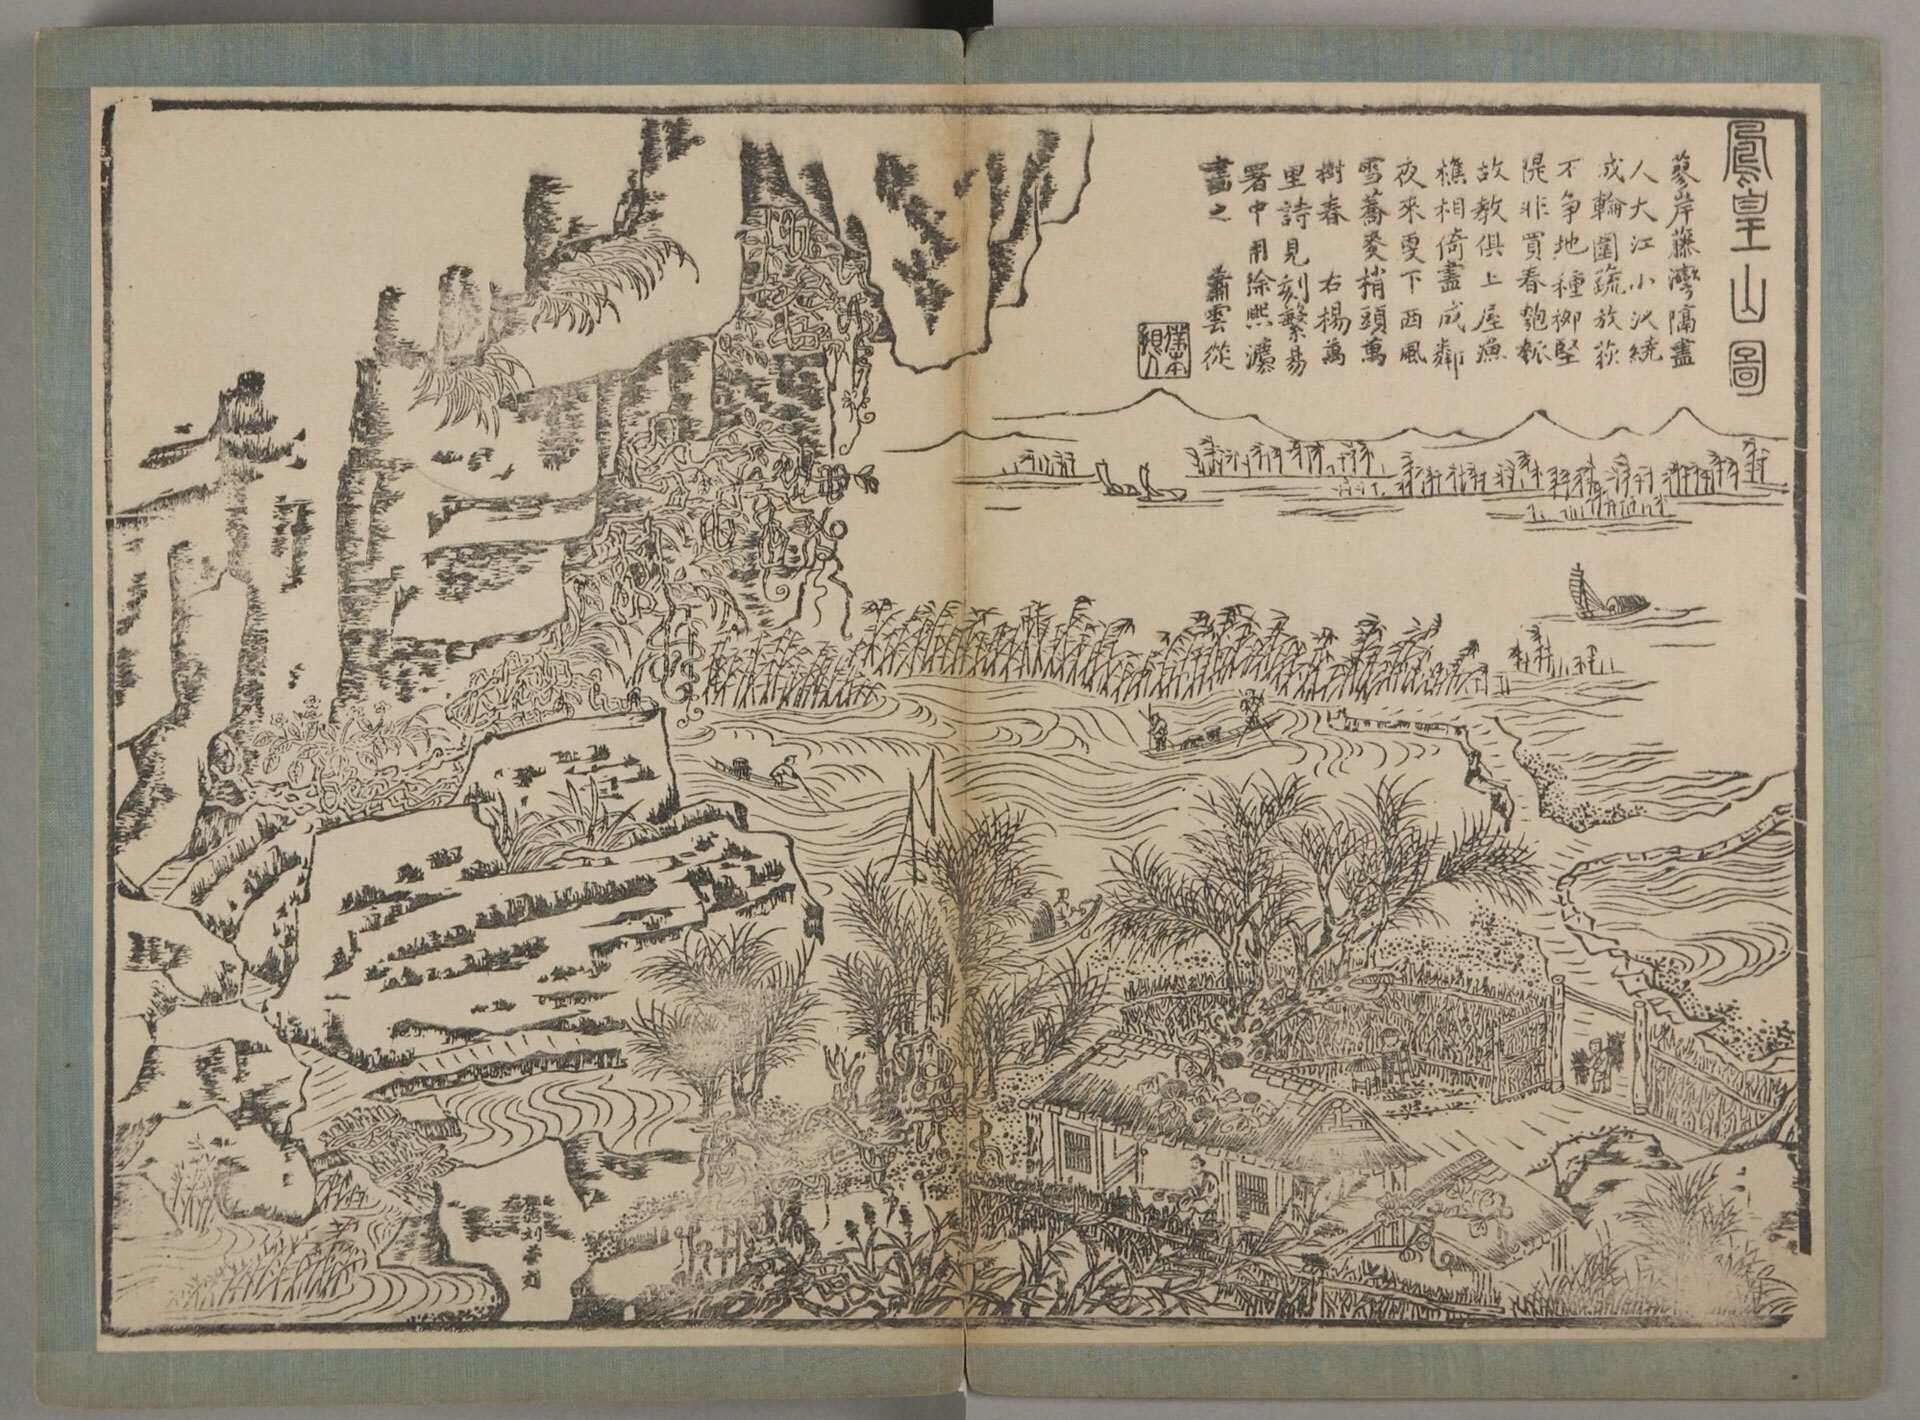 鳳皇山圖
蓼岸藤灣隔盡
人大江小汊繞
成輪圍蔬放荻
不爭地種柳堅
隄非買春匏瓠
故教俱上屋漁
樵相倚盡成鄰
夜來更下西風
雪蕎麥梢頭萬
樹春 右楊萬
里詩見刻繁昌
署中用徐熙灋
畫之 蕭雲從
旌德刘荣刻